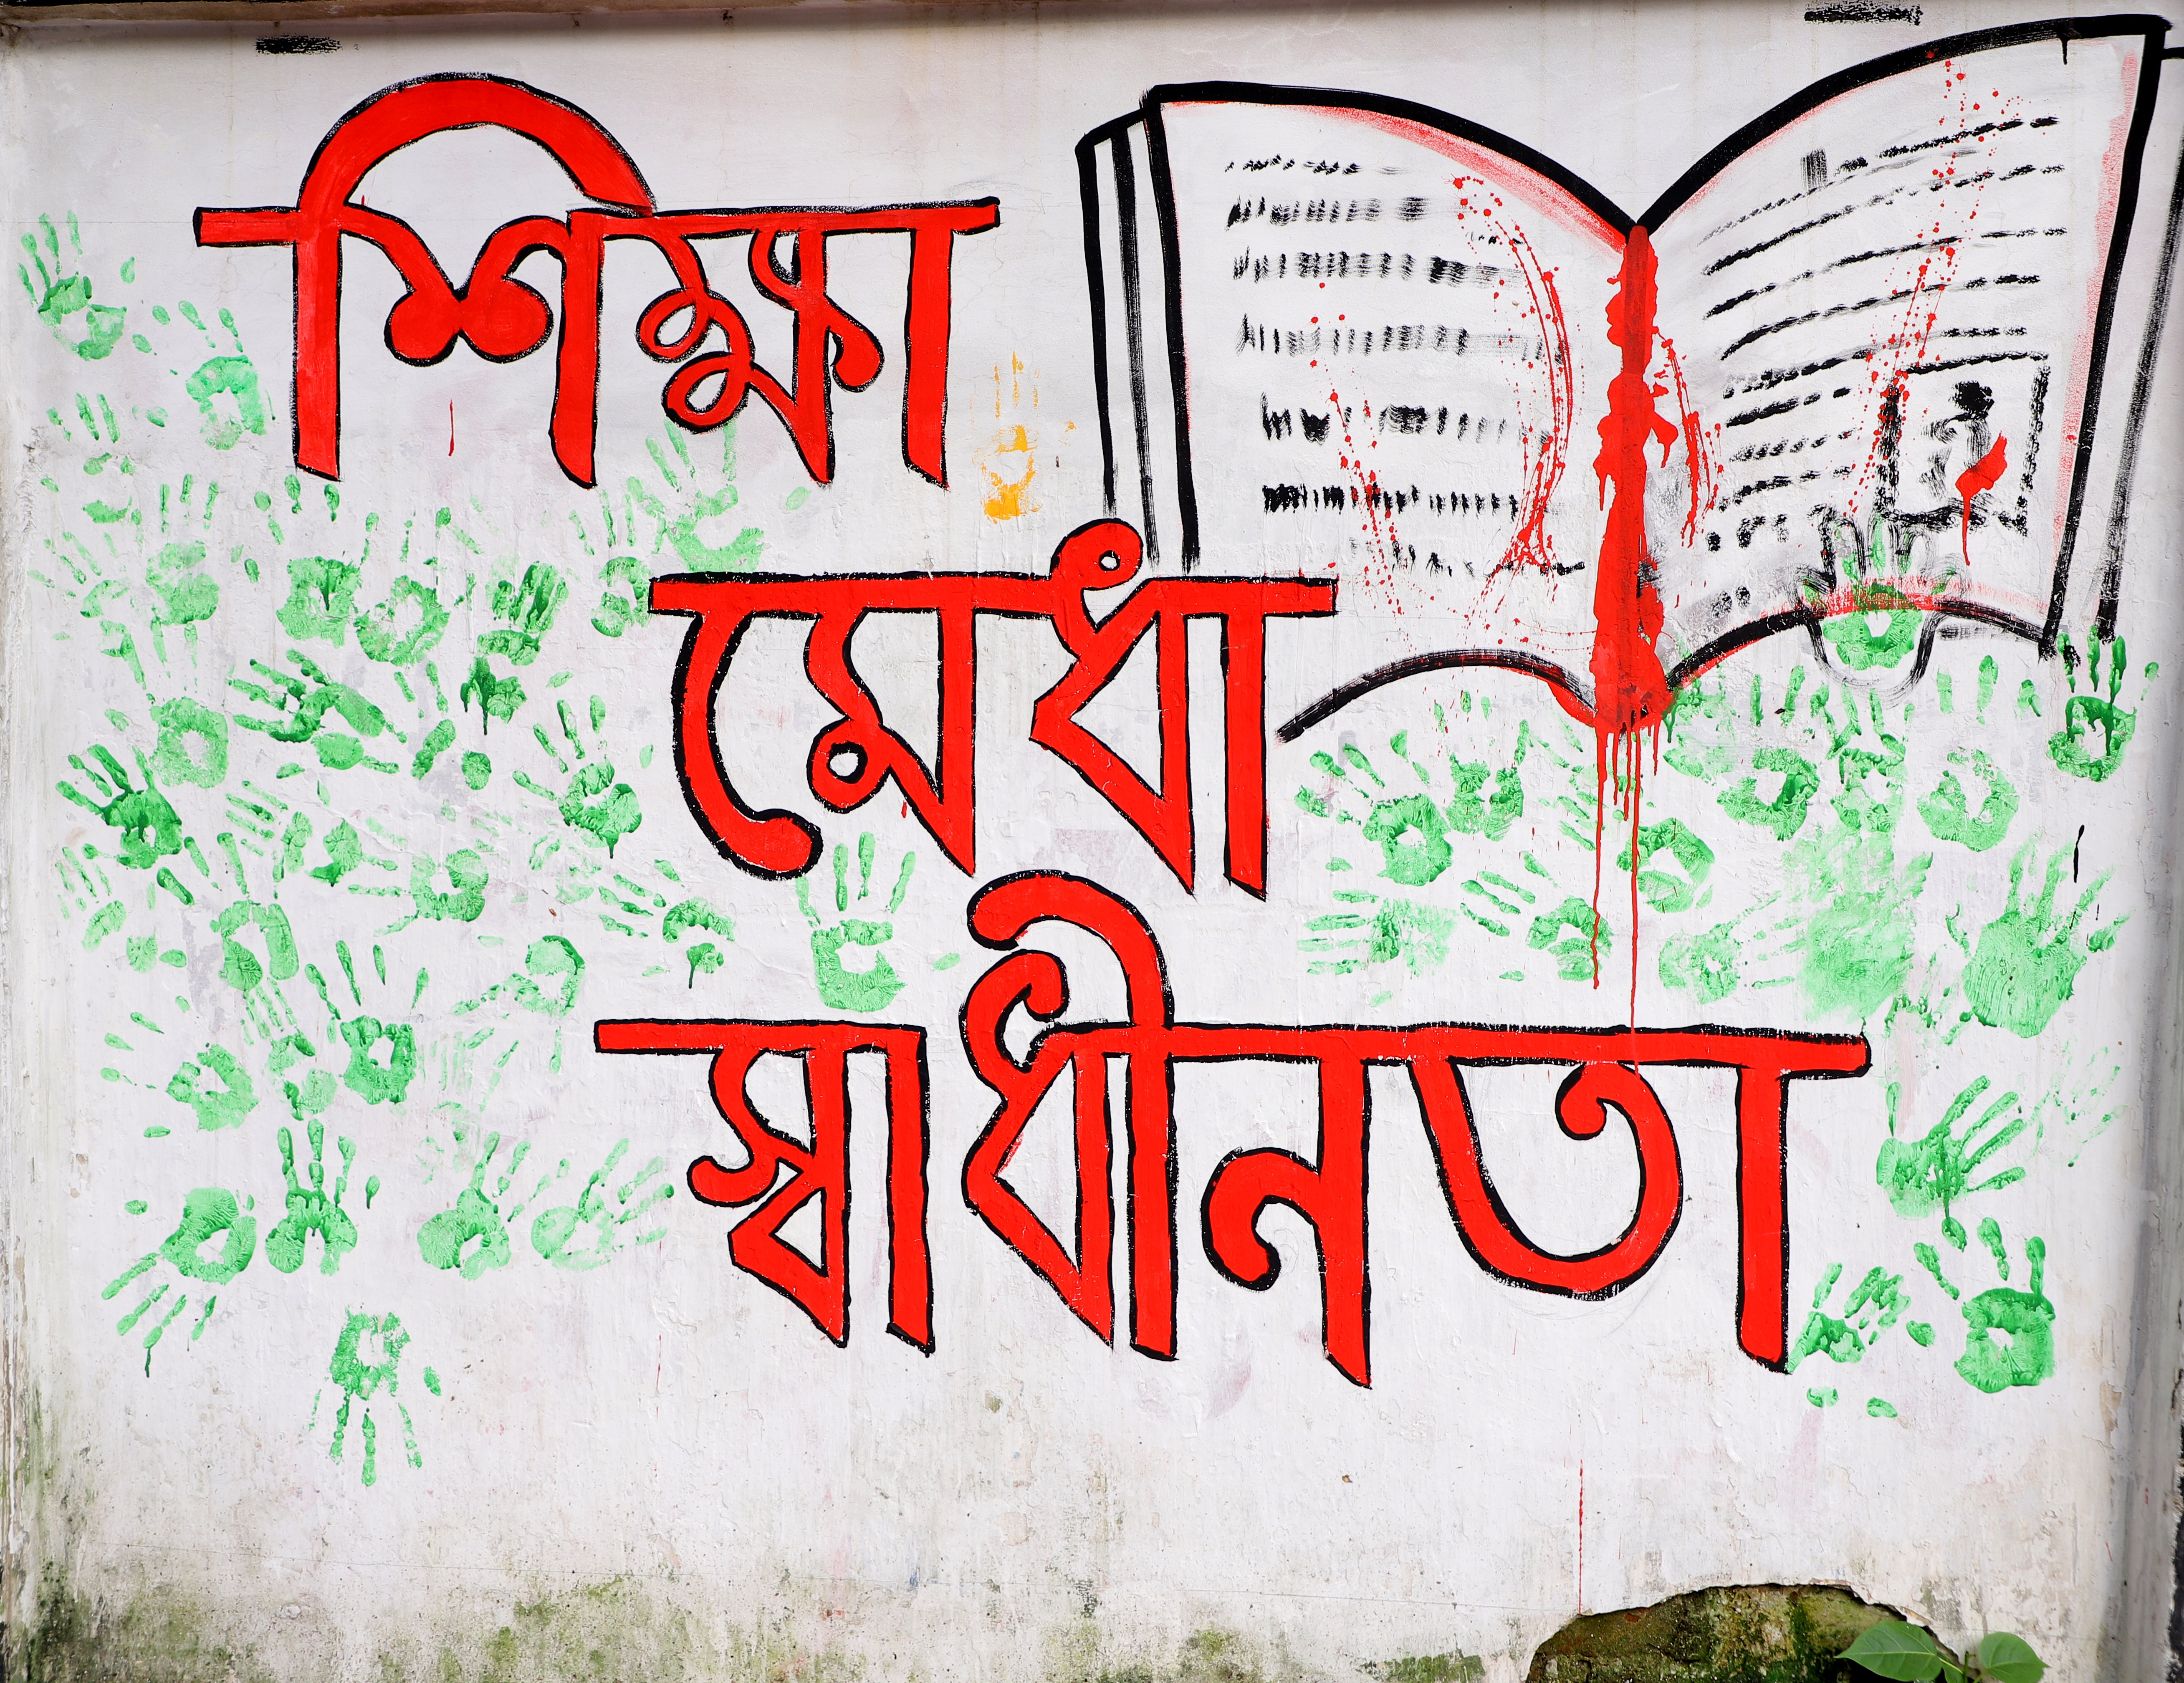 শিক্ষা
মেধা
স্বাধীনতা